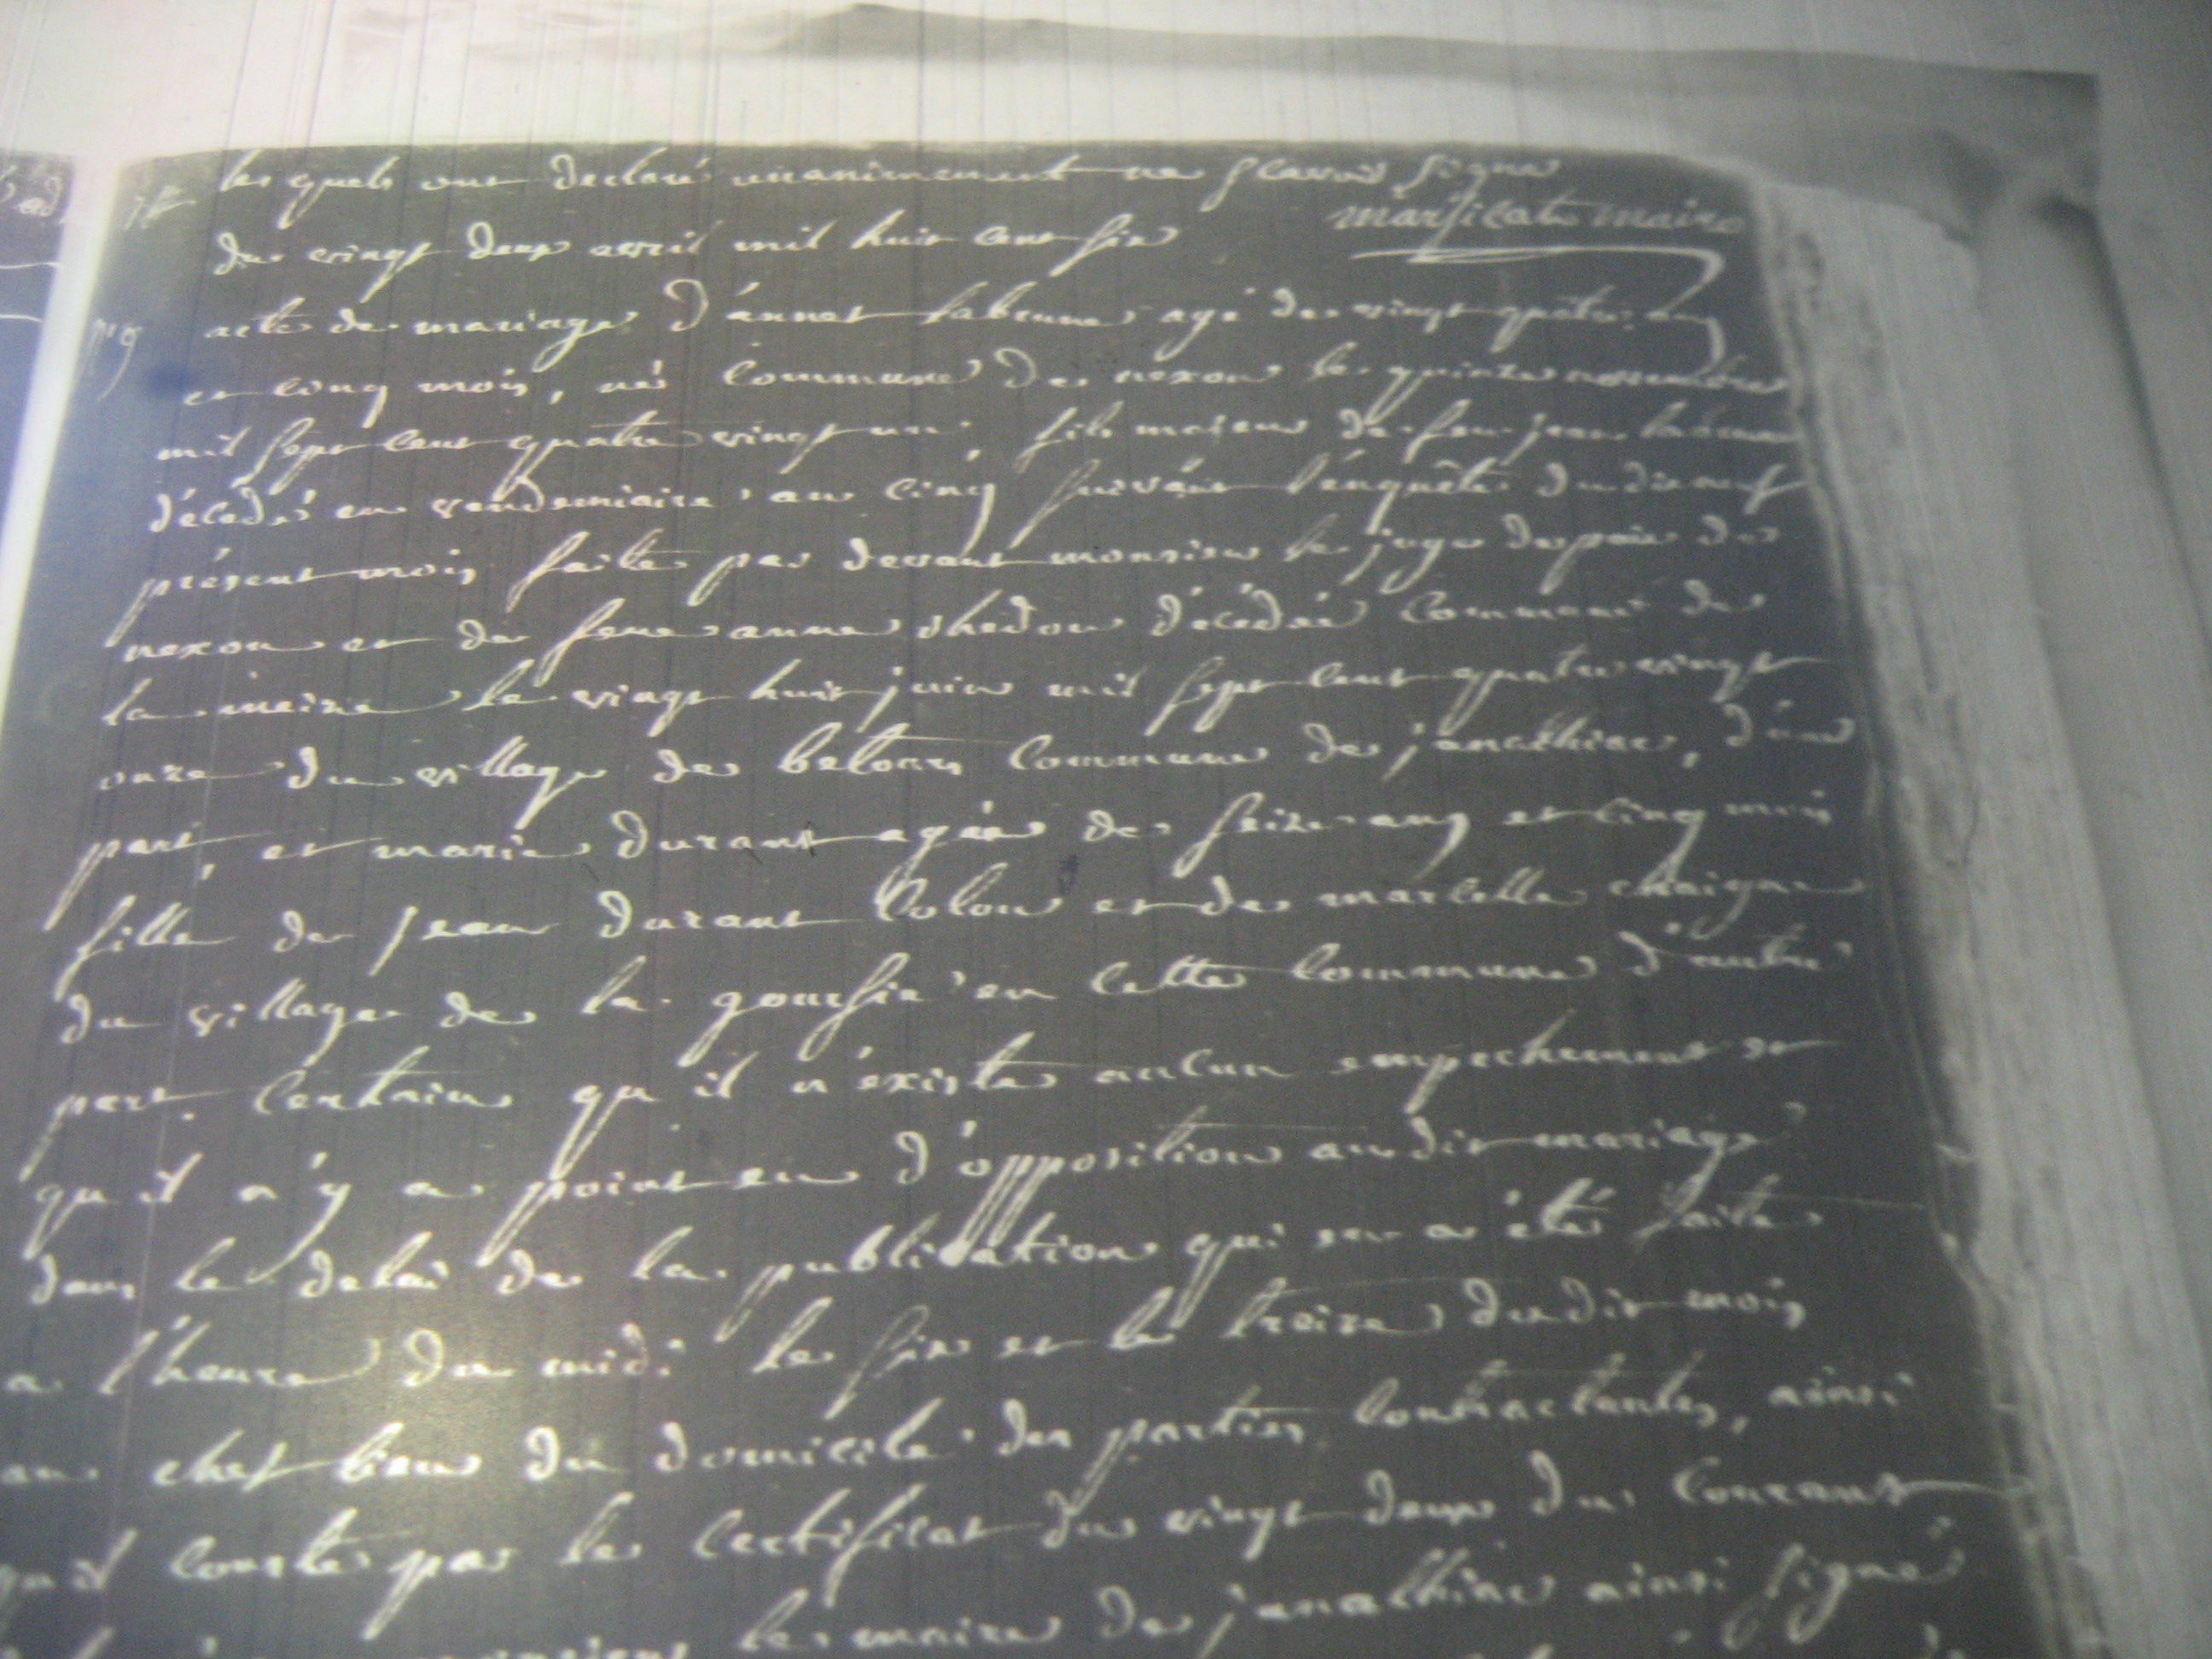 les quels ont declaré unanimement ne scavoir signer
marsicat maire
du vingt deux avril mil huit cent six
nº 9
acte de mariage d'ánnet labrune agé de vingt quatre ans
et cinq mois, né commune de nexon le quinze novembre
mil sept cent quatre vingt un, fils majeur de feu jean labrune
décedé en vendemiaire an cinq suivánt l'énquête du dix neuf
présent mois faite par devant monsieur le juge de paix de
nexon et de feue anne décédée commune de
la meize le vingt huit juin mil sept cent quatre vingt
onze du village de commune de janailhac, d'úne
part, et marie durant agée de seize ans et cinq mois
fille de jean durant colon et de marcelle
du village de la en cette commune d'autre
part. certain qu'il n'éxiste aucun empechement et
qu'il n'y a point eu d'ópposition au dit mariage
dans le delai de la publication qui en a été faite
a l'heure de midi le six et le treize du dit mois
au chef lieu du domicile des parties contractantes, ainsi
qu'il conste par le certificat du vingt deux du courant
le maire de janailhac ainsi signé